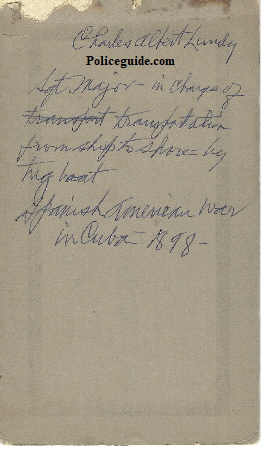 Charles Albert Lundy
Policeguide.com
Sgt Major - in charge of
transport transportation
from ship to shore - by
tug boat
Spanish American War
in Cuba - 1898 -